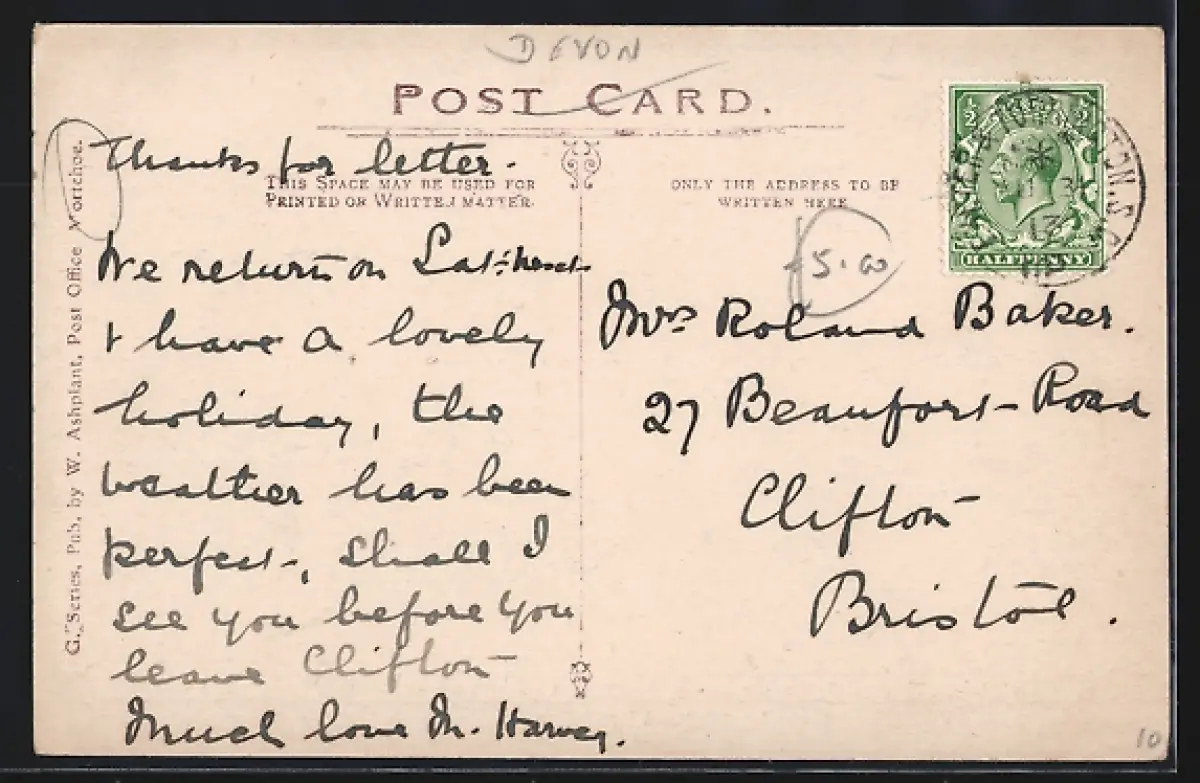 DEVON
POST CARD.
THIS SPACE MAY BE USED FOR
PRINTED OR WRITTEN MATTER.
ONLY THE ADDRESS TO BE
WRITTEN HERE
Thanks for letter.
We return on Sat: next
& have a lovely
holiday, the
weather has been
perfect, shall I
see you before you
leave Clifton
Much love M. Harvey.
£5.00
Mrs Roland Baker.
27 Beaufort Road
Clifton
Bristol.
½ ½
HALFPENNY
13
G. Series, Pub. by W. Ashplant, Post Office Mortehoe.
10